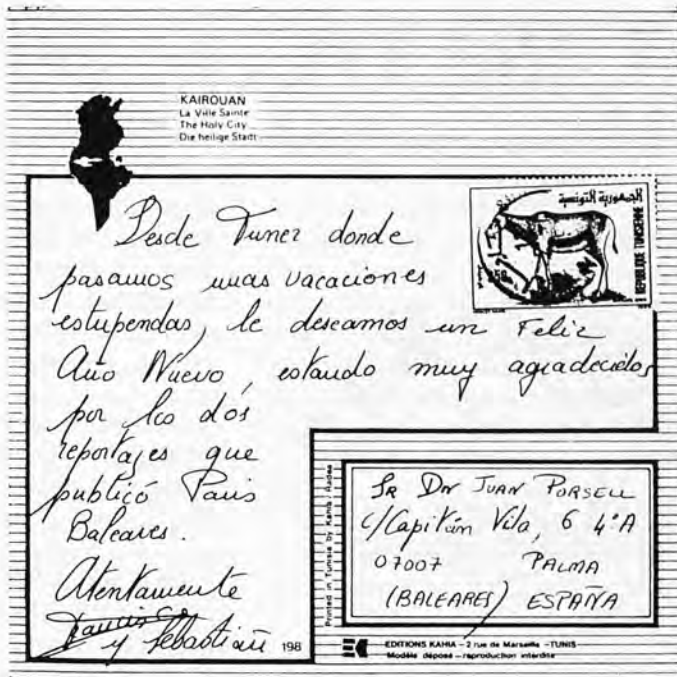 KAIROUAN
La Ville Sainte
The Holy City
Die heilige Stadt
الجمهورية التونسية
REPUBLIQUE TUNISIENNE
Desde Tunez donde
pasamos unas vacaciones
estupendas, le deseamos un Feliz
Año Nuevo, estando muy agradecidos
por los dos
reportajes que
publicó Paris
Baleares.
Atentamente
Francisco
y Sebastián
198
Printed in Tunisie by Kahia / Rades
SR DN JUAN PORSELL
C/Capitán Vila, 6 4ºA
07007 PALMA
(BALEARES) ESPAÑA
EDITIONS KAHIA - 2 rue de Marseille - TUNIS
Modèle déposé - reproduction interdite